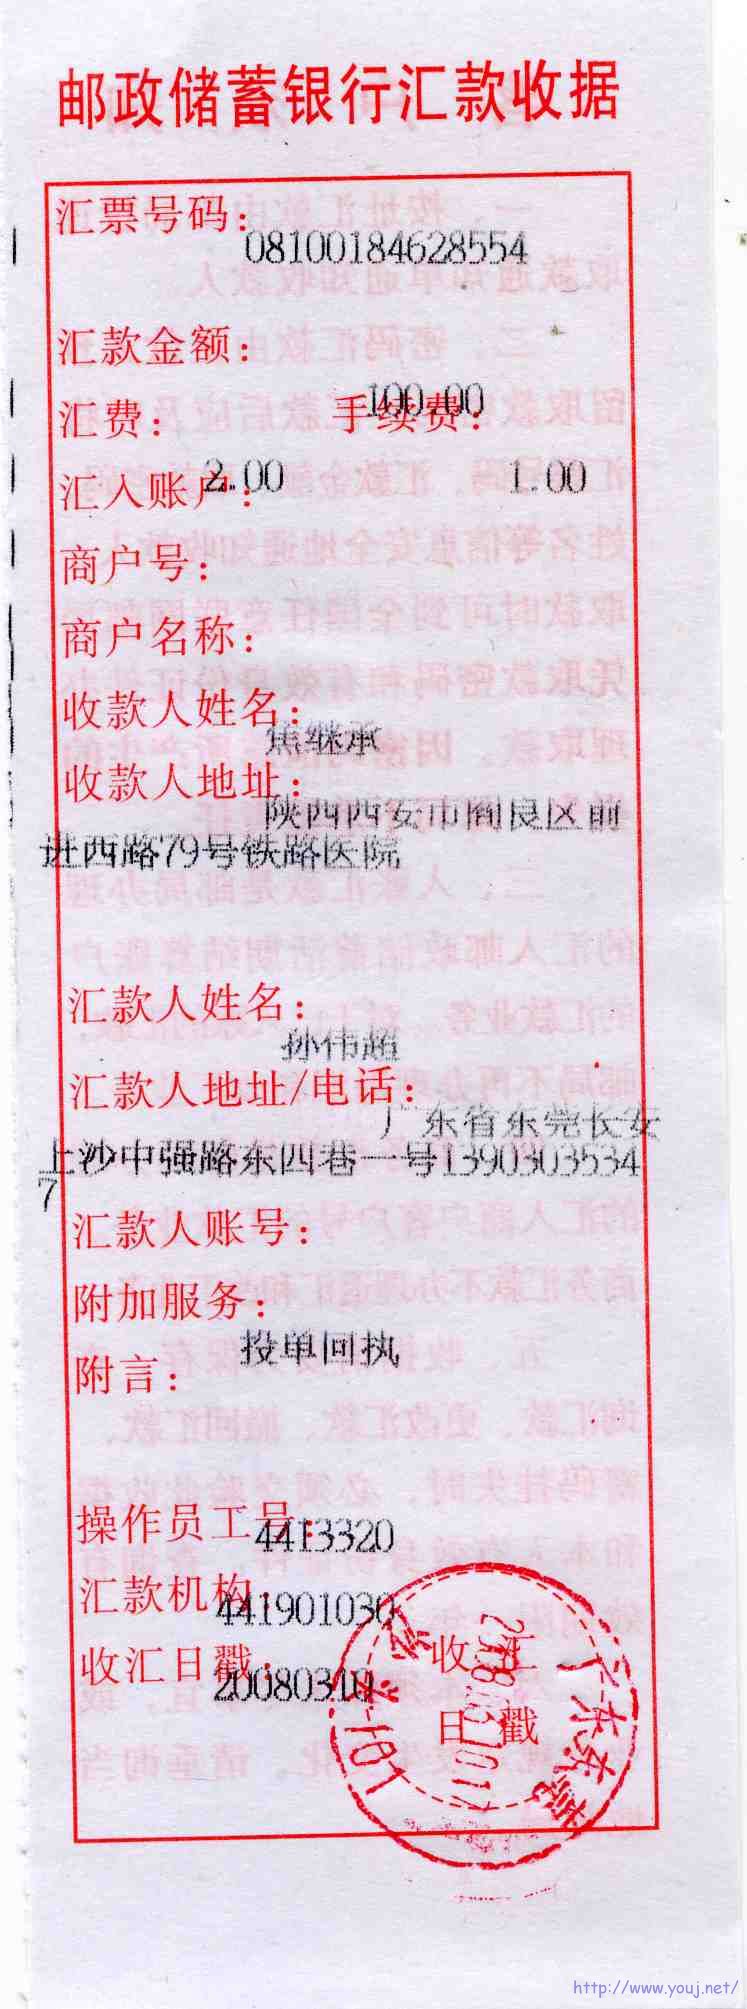 邮政储蓄银行汇款收据
汇票号码：
08100184628554
汇款金额：
100.00
汇费： 手续费：
2.00 1.00
汇入账户：
商户号：
商户名称：
收款人姓名：
焦继承
收款人地址：
陕西西安市阎良区前
进西路79号铁路医院
汇款人姓名：
孙伟超
汇款人地址/电话：
广东省东莞长安
上沙中强路东四巷一号1390303534
7
汇款人账号：
附加服务：
投单回执
附言：
操作员工号：
4413320
汇款机构：
441901030
收汇日戳：
20080310
收汇
日戳
广东东莞
http://www.youj.net/